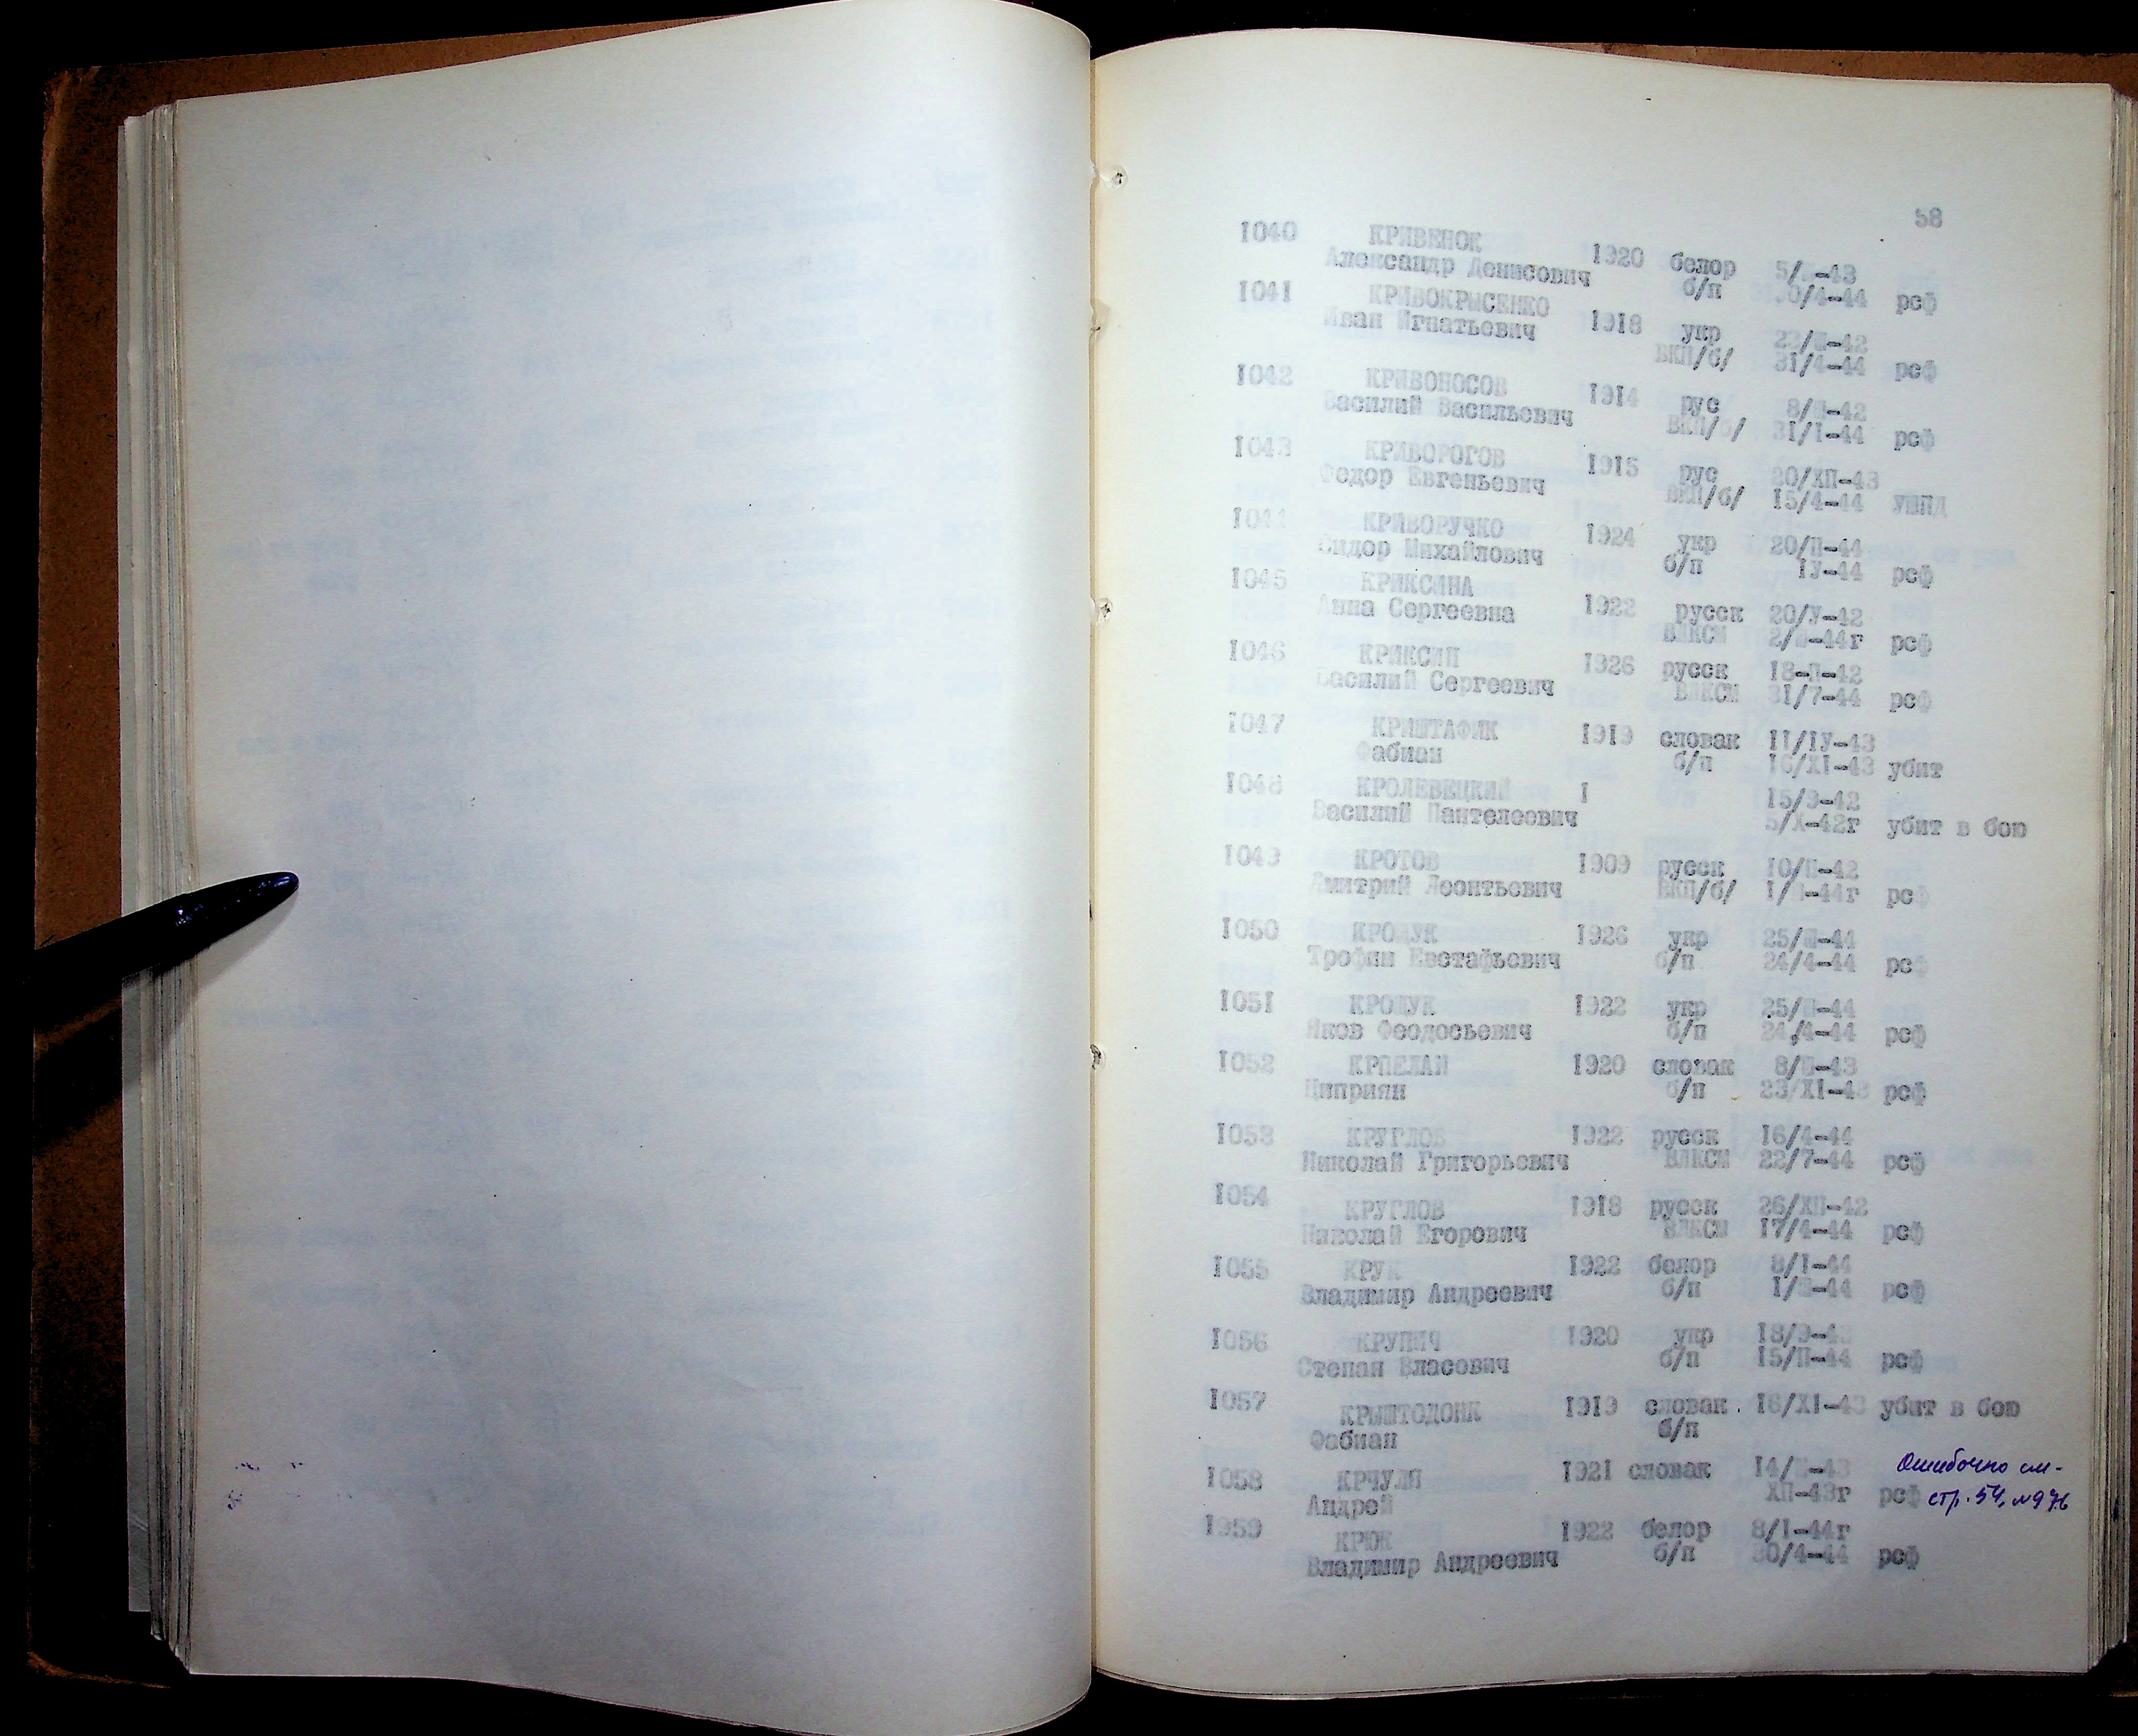 58
1040 КРИВЕНОК
Александр Денисович 1920 белор 5/ -43
б/п 30/4-44 рсф
1041 КРИВОКРЫСЕНКО
Иван Игнатьевич 1918 укр 22/Ш-42
ВКП/б/ 31/4-44 рсф
1042 КРИВОНОСОВ
Василий Васильевич 1914 рус 8/П-42
ВКП/б/ 31/I-44 рсф
1043 КРИВОРОГОВ
Федор Евгеньевич 1915 рус 20/ХП-43
ВКП/б/ 15/4-44 УШПД
1044 КРИВОРУЧКО
Сидор Михайлович 1924 укр 20/П-44
б/п IУ-44 рсф
1045 КРИКСИНА
Анна Сергеевна 1922 русск 20/У-42
ВЛКСМ 2/ -44г рсф
1046 КРИКСИН
Василий Сергеевич 1926 русск 18-П-42
ВЛКСМ 31/7-44 рсф
1047 КРИШТАФИК
Фабиан 1919 словак 11/IУ-43
б/п 16/XI-43 убит
1048 КРОЛЕВЕЦКИЙ I 15/9-42
Василий Пантелеевич 5/Х-42г убит в бою
1049 КРОТОВ 1909 русск 10/П-42
Дмитрий Леонтьевич ВКП/б/ 1/ -44г рсф
1050 КРОЩУК 1926 укр 25/Ш-44
Трофим Евстафьевич б/п 24/4-44 рсф
1051 КРОЩУК 1922 укр 25/П-44
Яков Феодосьевич б/п 24/4-44 рсф
1052 КРПЕЛАН 1920 словак 8/П-43
Циприян б/п 23/XI-43 рсф
1053 КРУГЛОВ 1922 русск 16/4-44
Николай Григорьевич ВЛКСМ 22/7-44 рсф
1054 КРУГЛОВ 1918 русск 26/ХП-42
Николай Егорович ВЛКСМ 17/4-44 рсф
1055 КРУК 1922 белор 8/I-44
Владимир Андреевич б/п 1/ -44 рсф
1056 КРУПИЧ 1920 укр 18/9-43
Степан Власович б/п 15/П-44 рсф
1057 КРЫШТОДОНК 1919 словак. 16/XI-43 убит в бою
Фабиан б/п
1058 КРЧУЛЯ 1921 словак 14/ -43 Ошибочно см-
Андрей ХП-43г рсф стр. 54, №976
1959 КРЮК 1922 белор 8/I-44г
Владимир Андреевич б/п 30/4-44 рсф